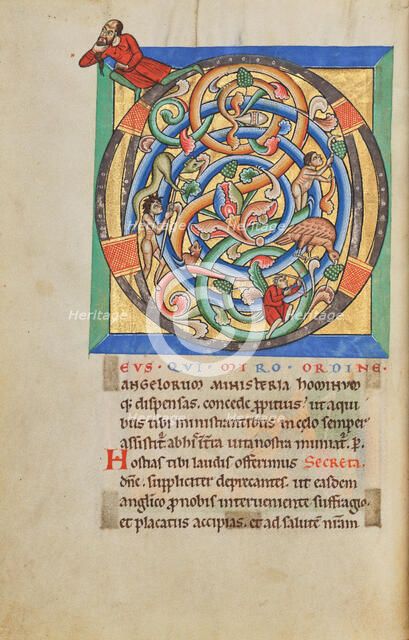 D
EVS · QVI · MIRO · ORDINE ·
ANGELORUM MINISTERIA HOMINUM
q; dispensas. concede propitius; ut a qui
bus tibi ministrantibus in celo semper
assistitur. ab his in terra uita nostra muniat. P.
Hostias tibi laudis offerimus Secreta.
dne. suppliciter deprecantes. ut easdem
anglico pro nobis interueniente suffragio.
et placatus accipias. et ad salutem nram
Heritage
Heritage
Heritage
Heritage